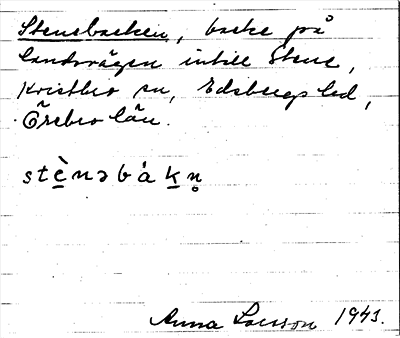 Stensbacken, backe på
landsvägen intill Stene,
Kvistbro sn, Edsbergs hd,
Örebro län.
stènsbákn̥
Anna Larsson 1943.